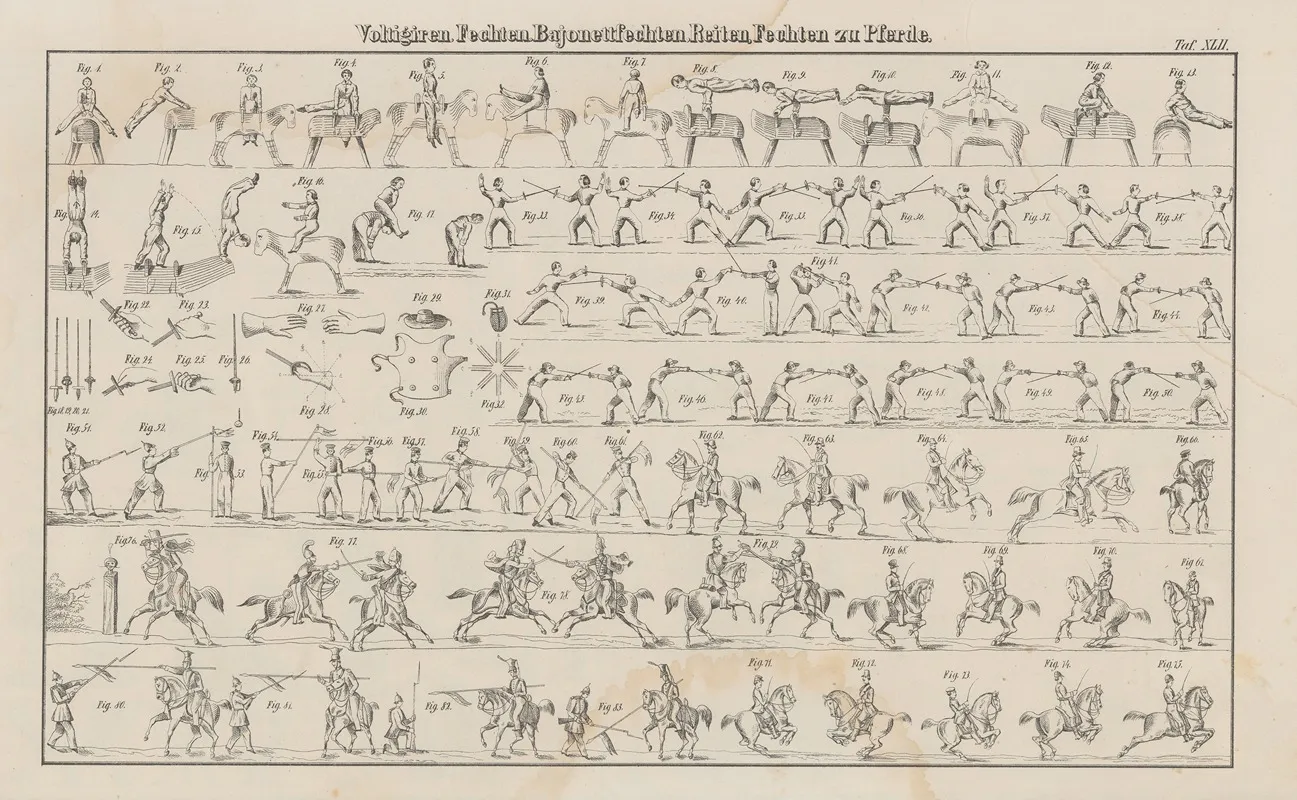 Voltigiren. Fechten. Bajonettfechten. Reiten, Fechten zu Pferde.
Taf. XLII.
Fig. 1.
Fig. 2.
Fig. 3.
Fig. 4.
Fig. 5.
Fig. 6.
Fig. 7.
Fig. 8.
Fig. 9.
Fig. 10.
Fig. 11.
Fig. 12.
Fig. 13.
Fig. 14.
Fig. 15.
Fig. 16.
Fig. 17.
Fig. 33.
Fig. 34.
Fig. 35.
Fig. 36.
Fig. 37.
Fig. 38.
Fig. 22.
Fig. 23.
Fig. 27.
Fig. 29.
Fig. 31.
Fig. 39.
Fig. 40.
Fig. 41.
Fig. 43.
Fig. 44.
Fig. 24.
Fig. 25.
Fig. 26.
Fig. 18, 19, 20, 21.
Fig. 28.
Fig. 30.
Fig. 32.
Fig. 45.
Fig. 46.
Fig. 47.
Fig. 48.
Fig. 49.
Fig. 50.
Fig. 51.
Fig. 52.
Fig. 53.
Fig. 54.
Fig. 55.
Fig. 56.
Fig. 57.
Fig. 58.
Fig. 59.
Fig. 60.
Fig. 61.
Fig. 62.
Fig. 63.
Fig. 64.
Fig. 65.
Fig. 66.
Fig. 76.
Fig. 77.
Fig. 78.
Fig. 79.
Fig. 68.
Fig. 69.
Fig. 70.
Fig. 80.
Fig. 81.
Fig. 82.
Fig. 83.
Fig. 71.
Fig. 72.
Fig. 73.
Fig. 74.
Fig. 75.